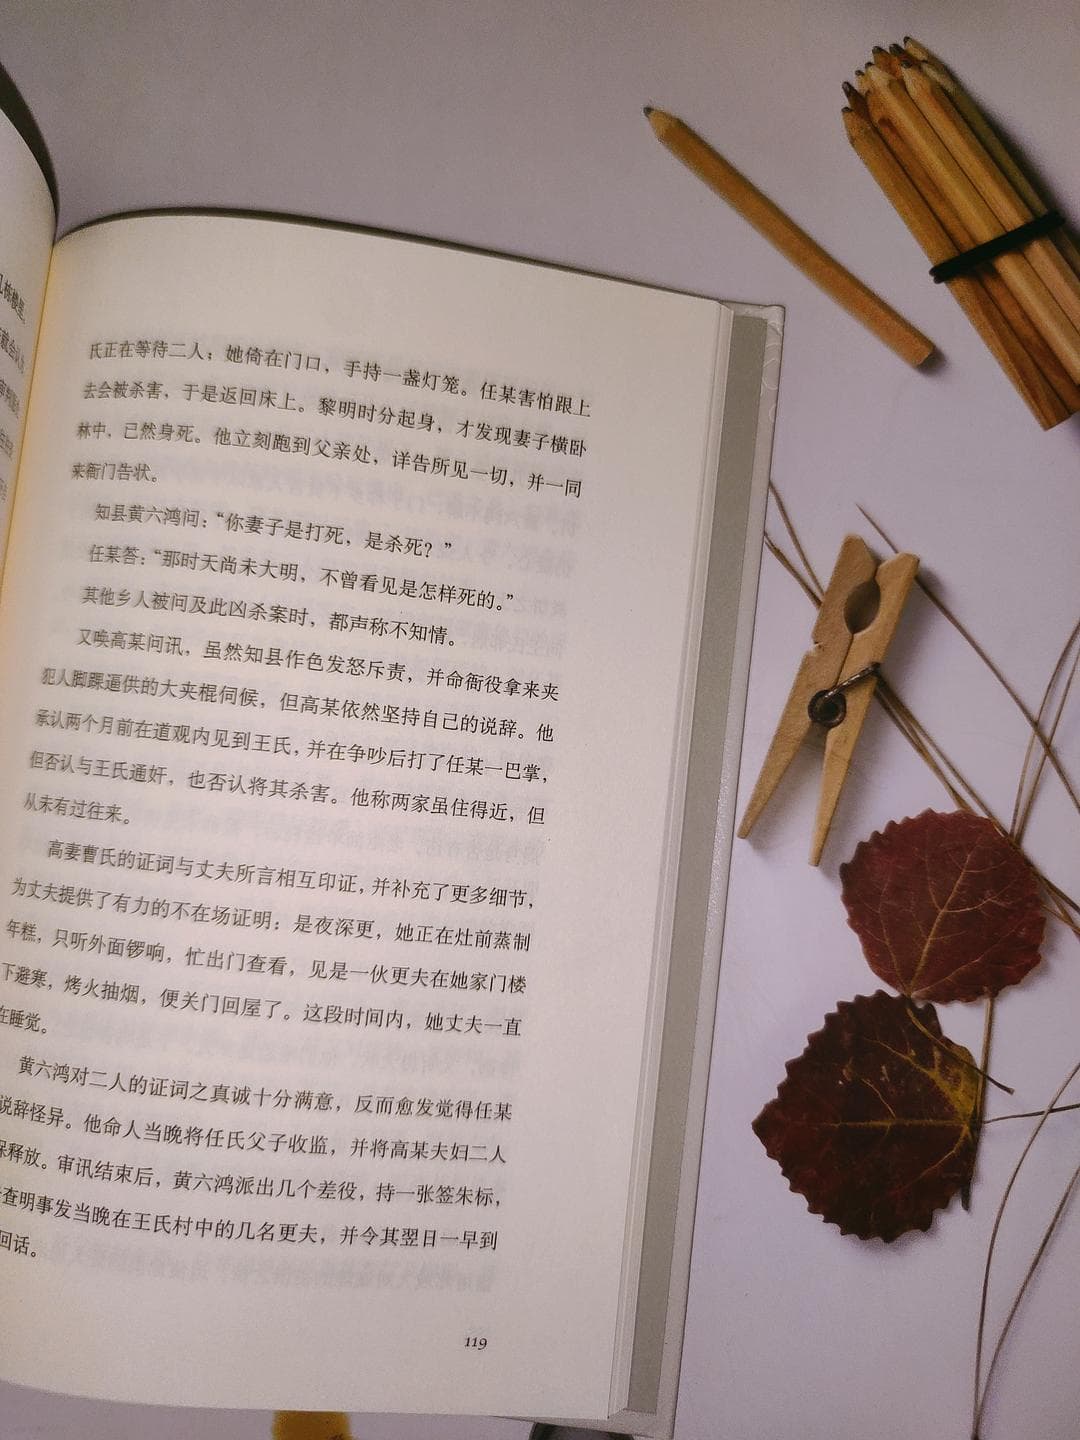 氏正在等待二人；她倚在门口，手持一盏灯笼。任某害怕跟上
去会被杀害，于是返回床上。黎明时分起身，才发现妻子横卧
林中，已然身死。他立刻跑到父亲处，详告所见一切，并一同
来衙门告状。
知县黄六鸿问：“你妻子是打死，是杀死？”
任某答：“那时天尚未大明，不曾看见是怎样死的。”
其他乡人被问及此凶杀案时，都声称不知情。
又唤高某问讯，虽然知县作色发怒斥责，并命衙役拿来夹
犯人脚踝逼供的大夹棍伺候，但高某依然坚持自己的说辞。他
承认两个月前在道观内见到王氏，并在争吵后打了任某一巴掌，
但否认与王氏通奸，也否认将其杀害。他称两家虽住得近，但
从未有过往来。
高妻曹氏的证词与丈夫所言相互印证，并补充了更多细节，
为丈夫提供了有力的不在场证明：是夜深更，她正在灶前蒸制
年糕，只听外面锣响，忙出门查看，见是一伙更夫在她家门楼
下避寒，烤火抽烟，便关门回屋了。这段时间内，她丈夫一直
在睡觉。
黄六鸿对二人的证词之真诚十分满意，反而愈发觉得任某
说辞怪异。他命人当晚将任氏父子收监，并将高某夫妇二人
保释放。审讯结束后，黄六鸿派出几个差役，持一张签朱标，
查明事发当晚在王氏村中的几名更夫，并令其翌日一早到
回话。
119